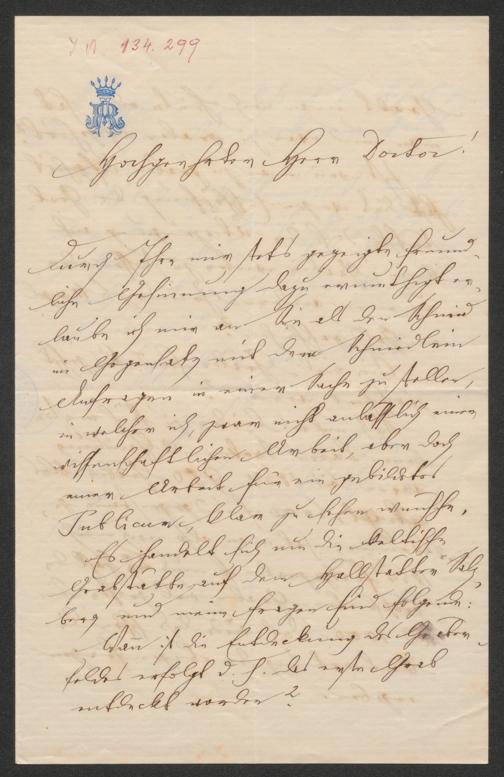 134.299
Hochgeehrter Herr Doctor!
Durch Ihre mir stets gezeigte freund-
liche Gesinnung dazu ermuthigt er-
laube ich mir an Sie als den Schmied
im Gegensatz mit dem Schmiedlein
Anfragen in einer Sache zu stellen,
in welcher ich, zwar nicht anläßlich einer
wissenschaftlichen Arbeit, aber doch
einer Arbeit für ein gebildetes
Publicum, klar zu sehen wünsche.
Es handelt sich um die keltische
Grabstätte auf dem Hallstätter Salz
berg und meine Fragen sind folgende:
Wann ist die Entdeckung des Gräber
feldes erfolgt d. h. das erste Grab
entdeckt worden?